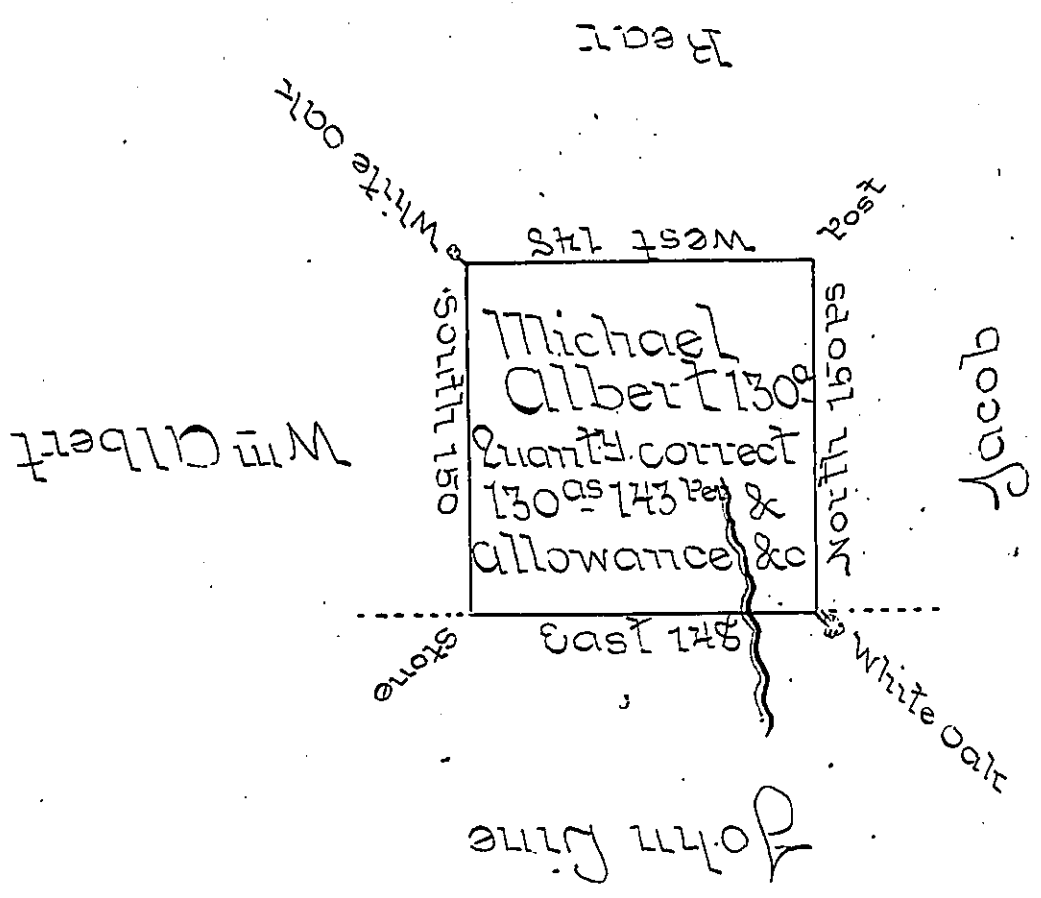 Rear
White Oak
Post
West 148
South 150
Michael
Albert 130a
Quanty. correct
130as 143 Per &
allowance &c
North 150 as
Wm Albert
Jacob
East 148
Stone
White Oak
John Line